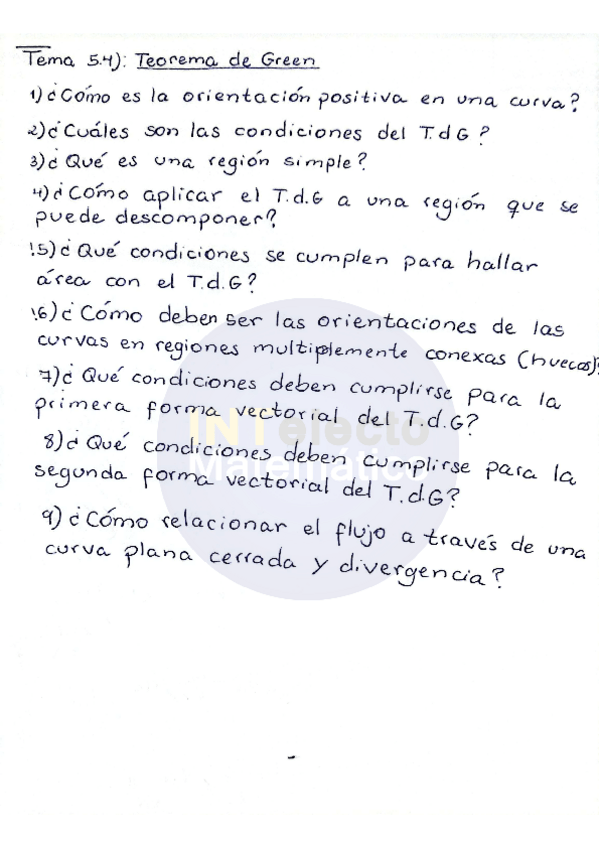 Tema 5.4): Teorema de Green
1) ¿Cómo es la orientación positiva en una curva?
2) ¿Cuáles son las condiciones del T.d G?
3) ¿Qué es una región simple?
4) ¿Cómo aplicar el T.d.G a una región que se
puede descomponer?
!5) ¿Qué condiciones se cumplen para hallar
área con el T.d.G?
!6) ¿Cómo deben ser las orientaciones de las
curvas en regiones multiplemente conexas (huecos)?
7) ¿Qué condiciones deben cumplirse para la
primera forma vectorial del T.d.G?
8) ¿Qué condiciones deben cumplirse para la
segunda forma vectorial del T.d.G?
9) ¿Cómo relacionar el flujo a través de una
curva plana cerrada y divergencia?
INTelecto
Matemático